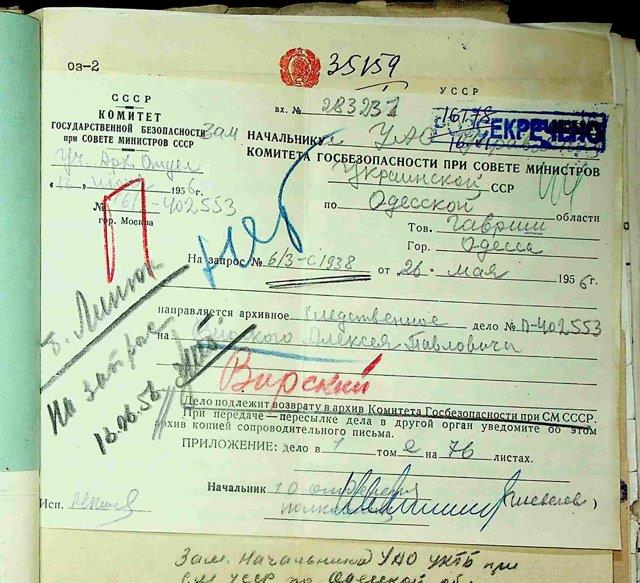 35159
оз-2
УССР
СССР
КОМИТЕТ
ГОСУДАРСТВЕННОЙ БЕЗОПАСНОСТИ
при СОВЕТЕ МИНИСТРОВ СССР
1956 г.
№ -402553
гор. Москва
вх. № 283231
16178
СЕКРЕЧЕНО
Зам НАЧАЛЬНИКУ УАО
КОМИТЕТА ГОСБЕЗОПАСНОСТИ ПРИ СОВЕТЕ МИНИСТРОВ
Украинской ССР
по Одесской области
Тов. Гавриш
Гор. Одесса
На запрос № 6/3-с1938 от 26 мая 1956 г.
направляется архивное следственное дело № П-402553
на Алексея Павловича
Варский
т. Линник
На запрос
18.06.56
Дело подлежит возврату в архив Комитета Госбезопасности при СМ СССР.
При передаче — пересылке дела в другой орган уведомите об этом
архив копией сопроводительного письма.
ПРИЛОЖЕНИЕ: дело в 1 том е на 76 листах.
Начальник 10 отделения
полковник )
Исп.
Зам. Начальника УАО УКГБ при
СМ УССР по Одесской обл.